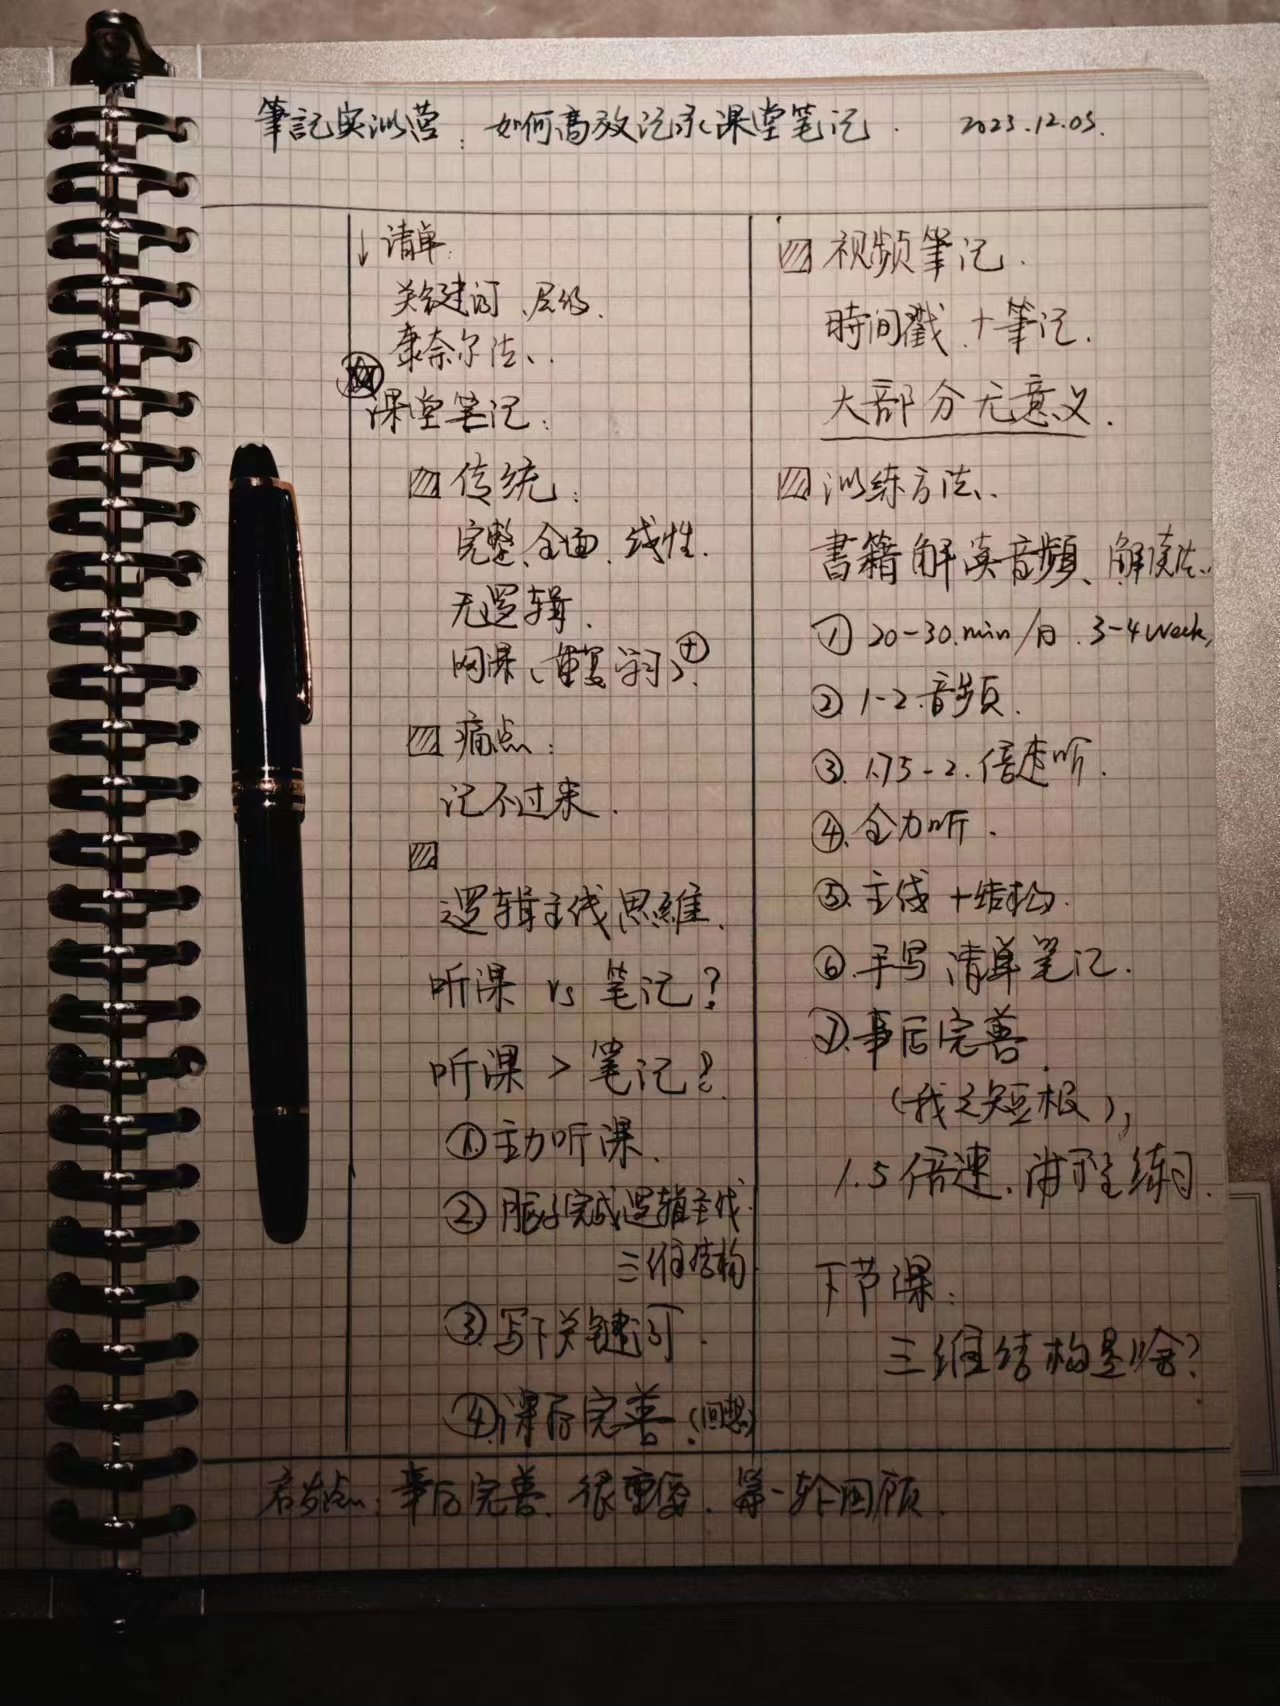 筆記实训营：如何高效记录课堂笔记. 2023.12.05.
↓清单:
关键词、层级.
康奈尔法、.
课堂笔记:
传统:
完整、全面、线性.
无逻辑.
网课、(重复学习)⊕.
痛点:
记不过来.
逻辑主线思維.
听课 vs 笔记?
听课 > 笔记?
①主力听课.
②脑子完成逻辑主线.
三维结构.
③写下关键词.
④课后完善.(回想)
视频筆记.
時间戳.十筆记.
大部分无意义.
训练方法、.
書籍解读音频、解读法、.
①20-30.min/日.3-4week,
②1-2.音频.
③.1.75-2.倍速听.
④.全力听.
⑤.主线+结构.
⑥.手写清单笔记.
⑦.事后完善.
(我之短板),
1.5倍速.练习.
下节课:
三维结构是啥?
启发点:事后完善.很重要.第一轮回顾.